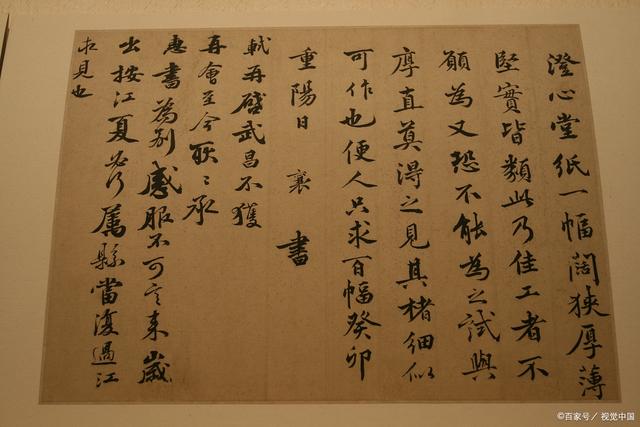 澄心堂紙一幅闊狹厚薄
堅實皆類此乃佳工者不
願為又恐不能為之試與
厚直莫得之見其楮細似
可作也便人只求百幅癸卯
重陽日 襄 書
軾再啓武昌不獲
再會至今耿〻承
惠書為別感服不可言来歲
出按江夏必行屬縣當復過江
求見也
©百家号/视觉中国